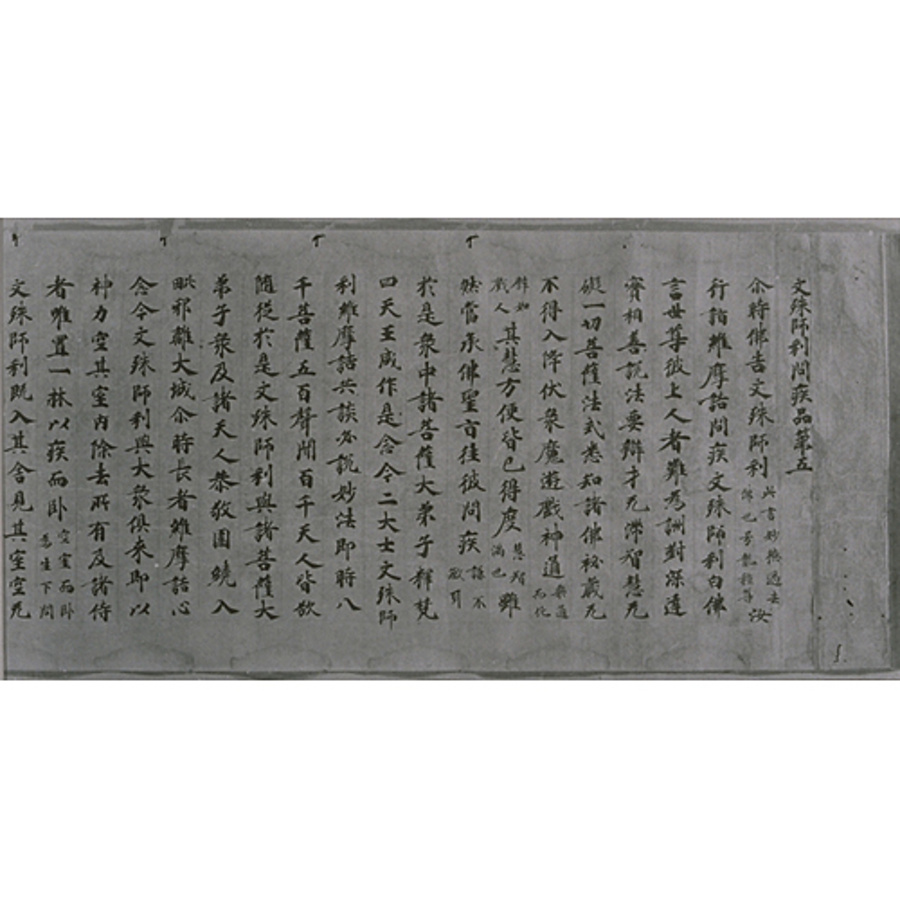 文殊師利問疾品第五
尒時佛告文殊師利 汝
行詣維摩詰問疾文殊師利白佛
言世尊彼上人者難為詶對深達
實相善說法要辯才无滯智慧无
礙一切菩薩法式悉知諸佛祕藏无
不得入降伏衆魔遊戲神通
其慧方便皆已得度 雖
然當承佛聖旨徃彼問疾
於是衆中諸菩薩大弟子釋梵
四天王咸作是念今二大士文殊師
利維摩詰共談必說妙法即時八
千菩薩五百聲聞百千天人皆欲
隨從於是文殊師利與諸菩薩大
弟子衆及諸天人恭敬圍繞入
毗耶離大城尒時長者維摩詰心
念今文殊師利與大衆俱來即以
神力空其室內除去所有及諸侍
者唯置一牀以疾而卧 空室而卧
文殊師利既入其舍見其室空无